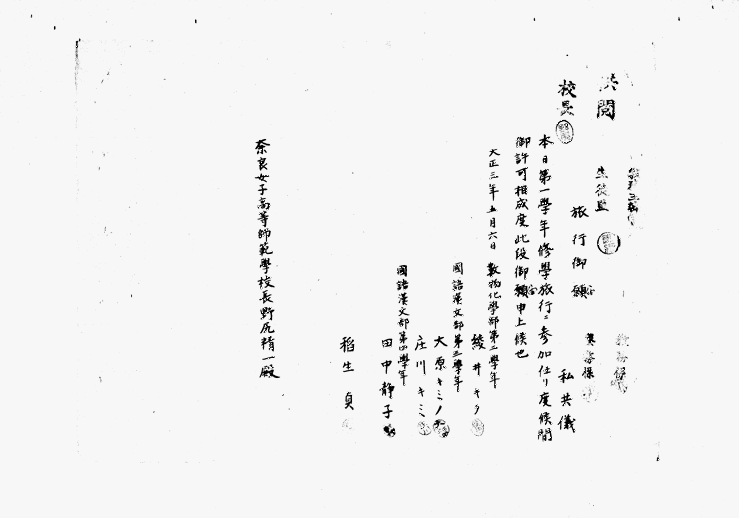 供閲
校長
生徒監
旅行御願
私共儀
本日第一學年修學旅行ニ參加仕リ度候間
御許可相成度此段御願申上候也
大正三年五月六日
數物化学部第二學年
綾井キク
國語漢文部第三學年
大原キミノ
庄川キミ
國語漢文部第四學年
田中静子
稻生貞
奈良女子高等師範學校長野尻精一殿